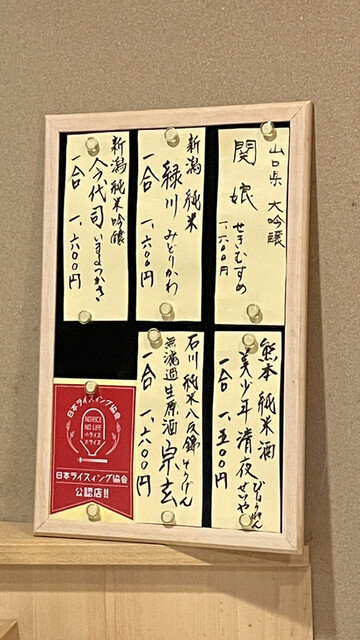 山口県 大吟醸
関娘
せきむすめ
一、六〇〇円
新潟 純米
緑川 みどりかわ
一合 一、六〇〇円
新潟 純米吟醸
今代司 いまよつかさ
一合 一、六〇〇円
熊本 純米酒
美少年清夜 びしょうねん せいや
一合 一、五〇〇円
石川 純米八反錦 そうげん
無濾過生原酒 宗玄
一合 一、六〇〇円
日本ライスィング協会
NO RICE
NO LIFE
小ライス
大ライス
日本ライスィング協会
公認店!!